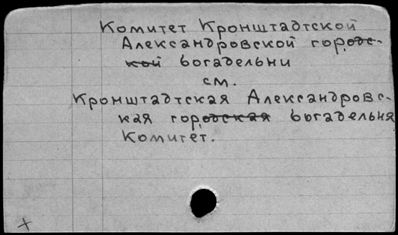 Комитет Кронштадтской
Александровской городс-
кой богадельни
см.
Кронштадтская Александровс-
кая городская богадельня
Комитет.